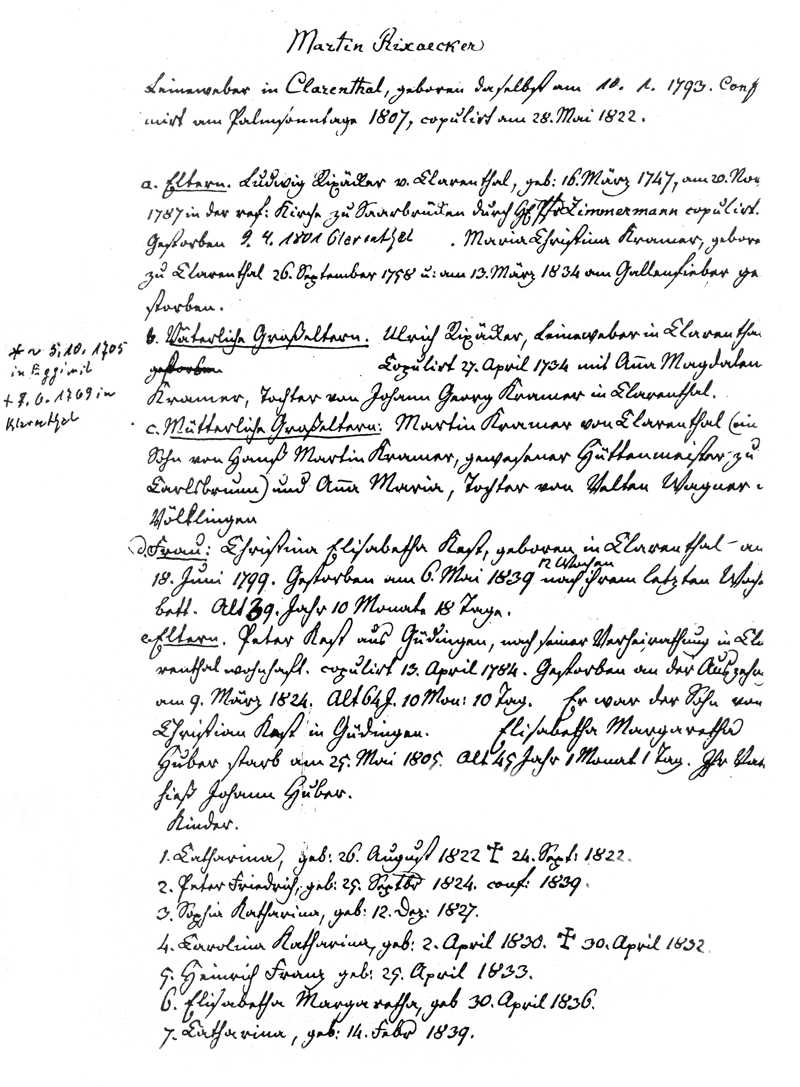 Martin Rixaecker
Leineweber in Clarenthal, geboren daselbst am 10. 1. 1793. Conf
mirt am Palmsonntage 1807, copulirt am 28. Mai 1822.
a. Eltern. Ludwig Rixäcker v. Clarenthal, geb: 16. März 1747, am 20. Nov
1787 in der ref: Kirche zu Saarbrücken durch H. Pfr Zimmermann copulirt.
Gestorben 9. 4. 1801 Clarenthal . Maria Christina Kramer, gebore
zu Clarenthal 26. September 1758 u: am 13. März 1834 am Gallenfieber ge
storben.
b. Väterliche Großeltern. Ulrich Rixäcker, Leineweber in Clarentha
gestorben Copulirt 27. April 1734 mit Anna Magdalen
Kramer, Tochter von Johann Georg Kramer in Clarenthal.
* ~ 5. 10. 1705
in Eggiwil
+ 7. 6. 1769 in
Klarenthal
c. Mütterliche Großeltern: Martin Kramer von Clarenthal (ein
Sohn von Hanß Martin Kramer, gewesener Hüttenmeister zu
Carlsbrunn) und Anna Maria, Tochter von Velten Wagner
Völklingen
d. Frau: Christina Elisabetha Kest, geboren in Clarenthal an
18. Juni 1799. Gestorben am 6. Mai 1839 12 Wochen nach ihrem letzten Woch
bett. Alt 39. Jahr 10 Monate 18 Tage.
e. Eltern. Peter Kest aus Güdingen, nach seiner Verheirathung in Cla
renthal wohnhaft. copulirt 13. April 1784. Gestorben an der Auszehr
am 9. März 1824. Alt 64 J. 10 Mon: 10 Tag. Er war der Sohn von
Christian Kest in Güdingen. Elisabetha Margaretha
Huber starb am 25. Mai 1805. Alt 45 Jahr 1 Monat 1 Tag. Ihr Vat
hieß Johann Huber.
Kinder.
1. Catharina, geb: 26. August 1822 ✝ 24. Sept: 1822.
2. Peter Friedrich, geb: 25. Septbr 1824. conf: 1839.
3. Sophia Katharina, geb: 12. Dez: 1827.
4. Carolina Katharina, geb: 2. April 1830. ✝ 30. April 1832.
5. Heinrich Franz geb: 25. April 1833.
6. Elisabetha Margaretha, geb 30. April 1836.
7. Catharina, geb: 14. Febr 1839.